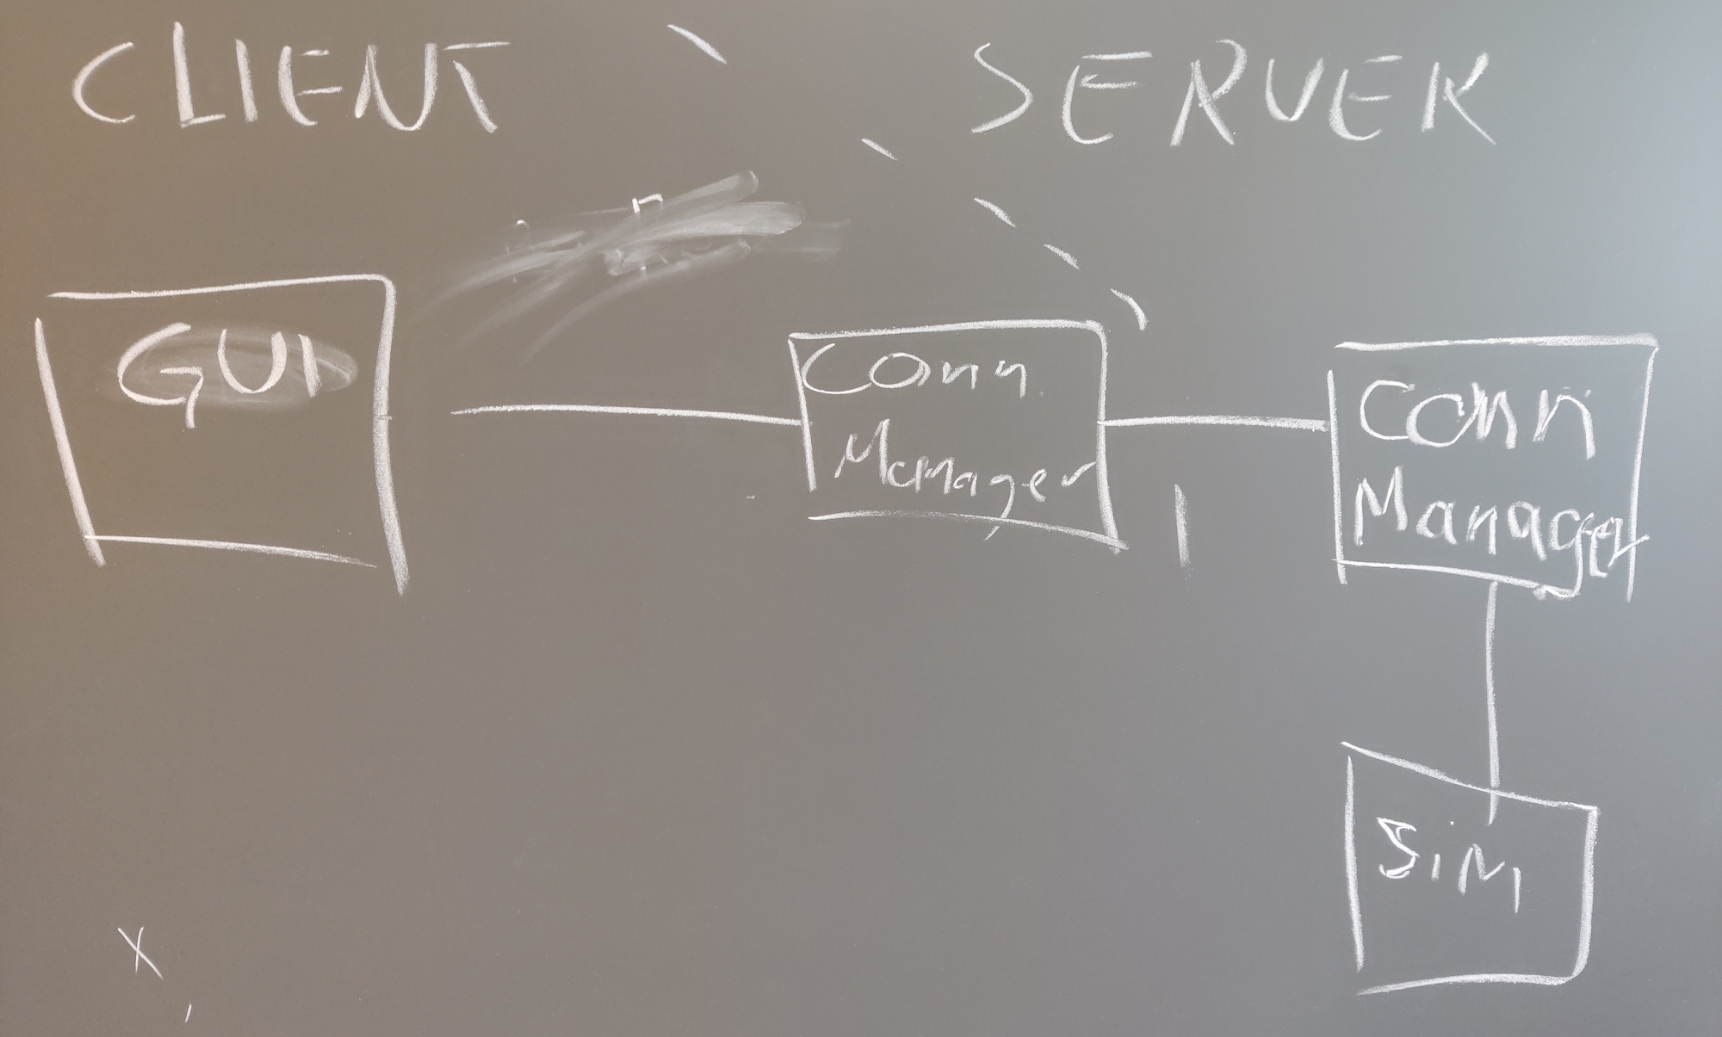 CLIENT
SERVER
GUI
Conn
Manager
Conn
Manager
SiM
X